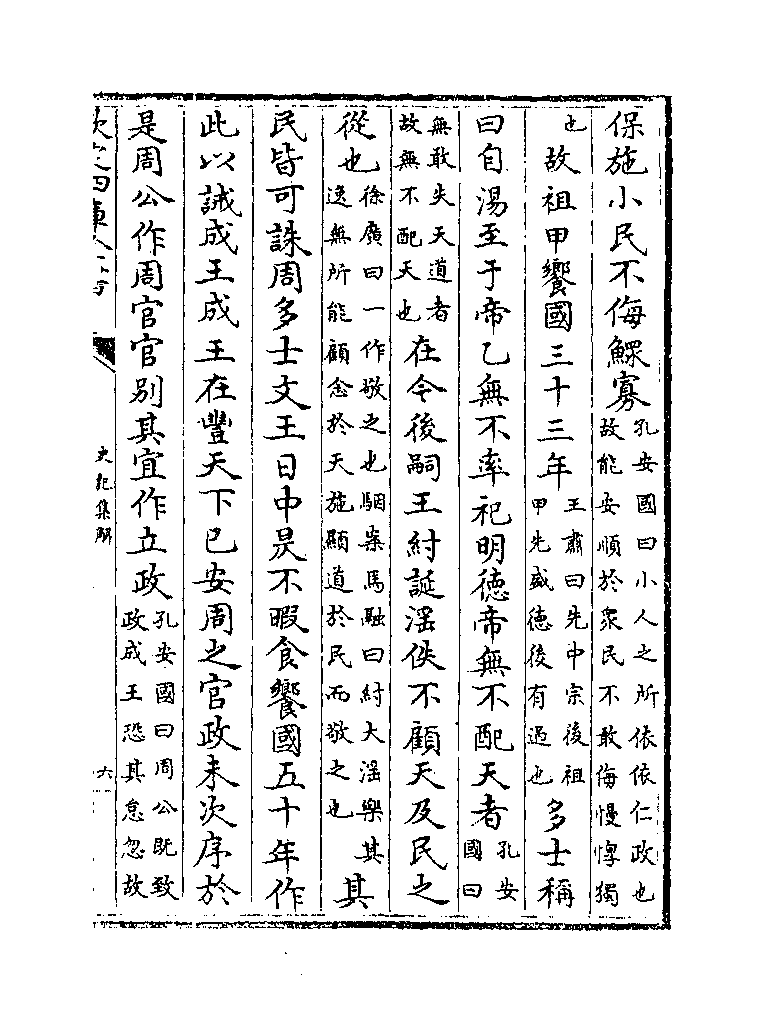 保施小民不侮鰥寡孔安國曰小人之所依依仁政也故能安順於衆民不敢侮慢惸獨
也故祖甲饗國三十三年王肅曰先中宗後祖甲先盛德後有過也多士稱
曰自湯至于帝乙無不率祀明德帝無不配天者孔安國曰
無敢失天道者故無不配天也在今後嗣王紂誕淫佚不顧天及民之
從也徐廣曰一作敬之也駰案馬融曰紂大淫樂其逸無所能顧念於天施顯道於民而敬之也其
民皆可誅周多士文王日中昃不暇食饗國五十年作
此以誡成王成王在豐天下已安周之官政未次序於
是周公作周官官别其宜作立政孔安國曰周公既致政成王恐其怠忽故
史記集解
六